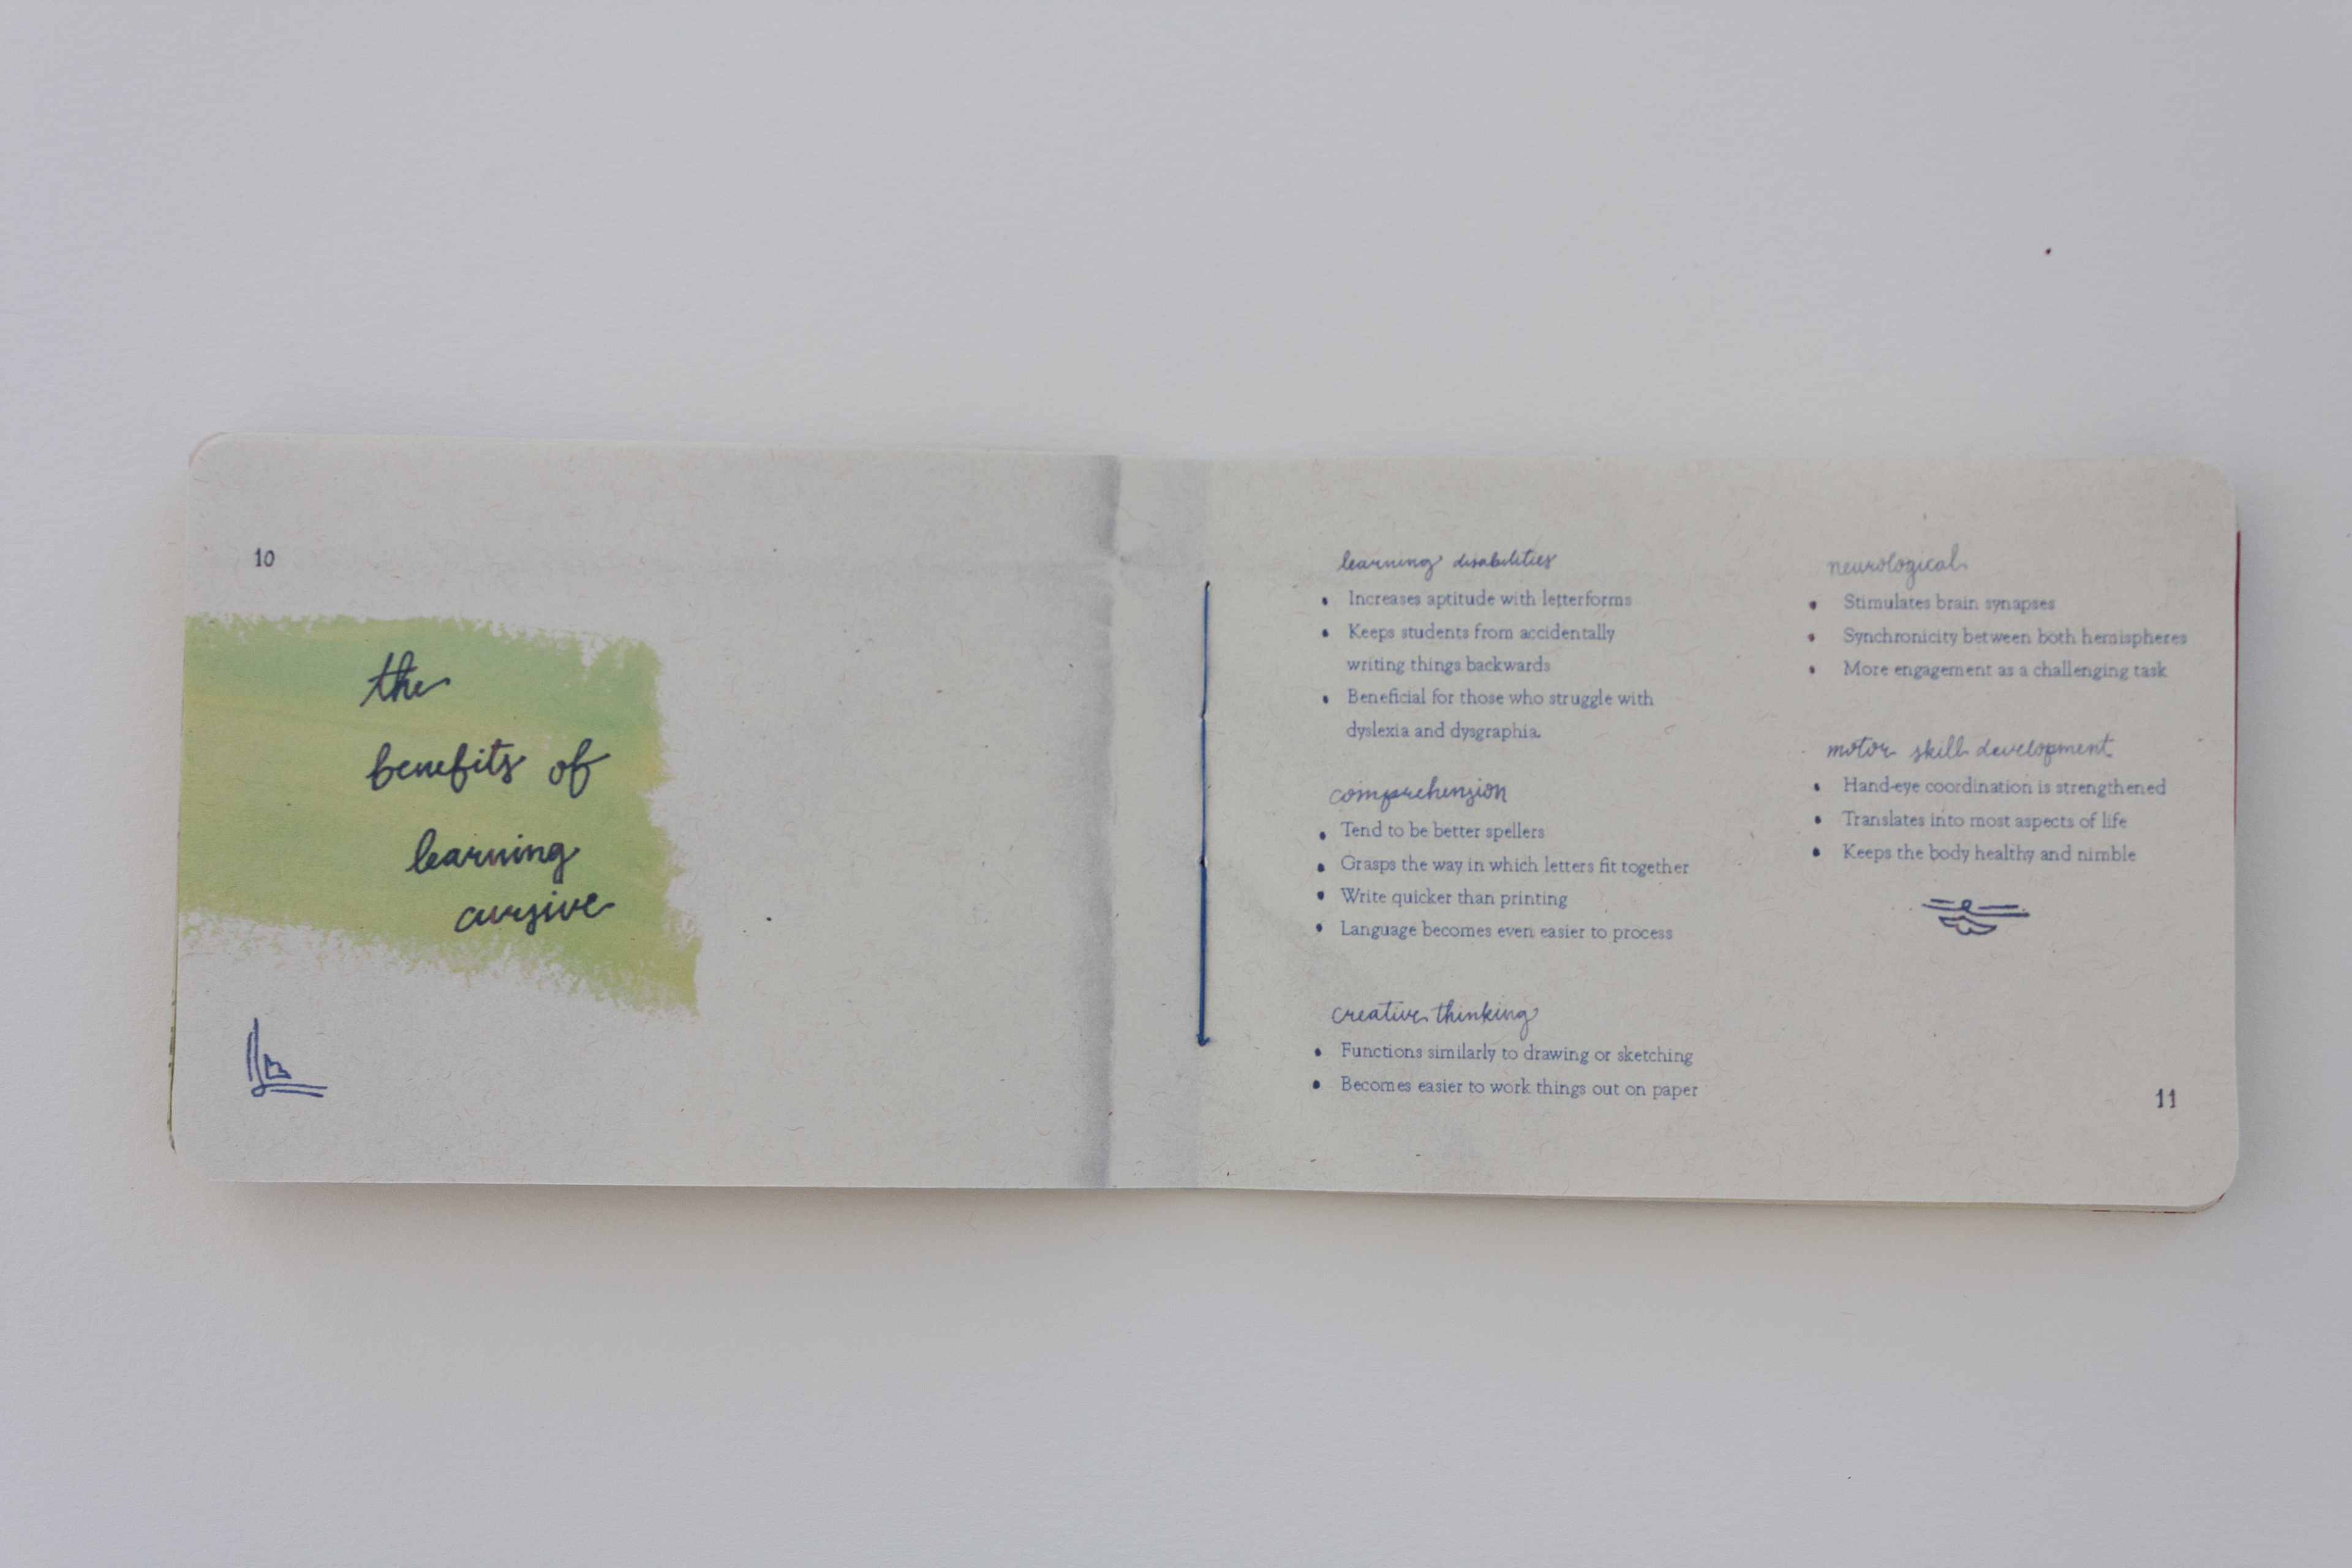 10
the
benefits of
learning
cursive
learning disabilities
• Increases aptitude with letterforms
• Keeps students from accidentally
writing things backwards
• Beneficial for those who struggle with
dyslexia and dysgraphia.
comprehension
• Tend to be better spellers
• Grasps the way in which letters fit together
• Write quicker than printing
• Language becomes even easier to process
creative thinking
• Functions similarly to drawing or sketching
• Becomes easier to work things out on paper
neurological
• Stimulates brain synapses
• Synchronicity between both hemispheres
• More engagement as a challenging task
motor skill development
• Hand-eye coordination is strengthened
• Translates into most aspects of life
• Keeps the body healthy and nimble
11